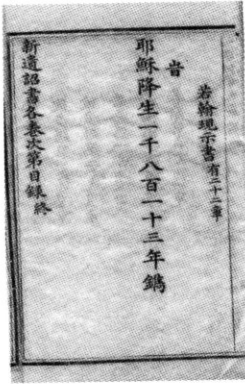 若翰現示書有二十二章
旹
耶穌降生一千八百一十三年鐫
新遺詔書各卷次第目錄終